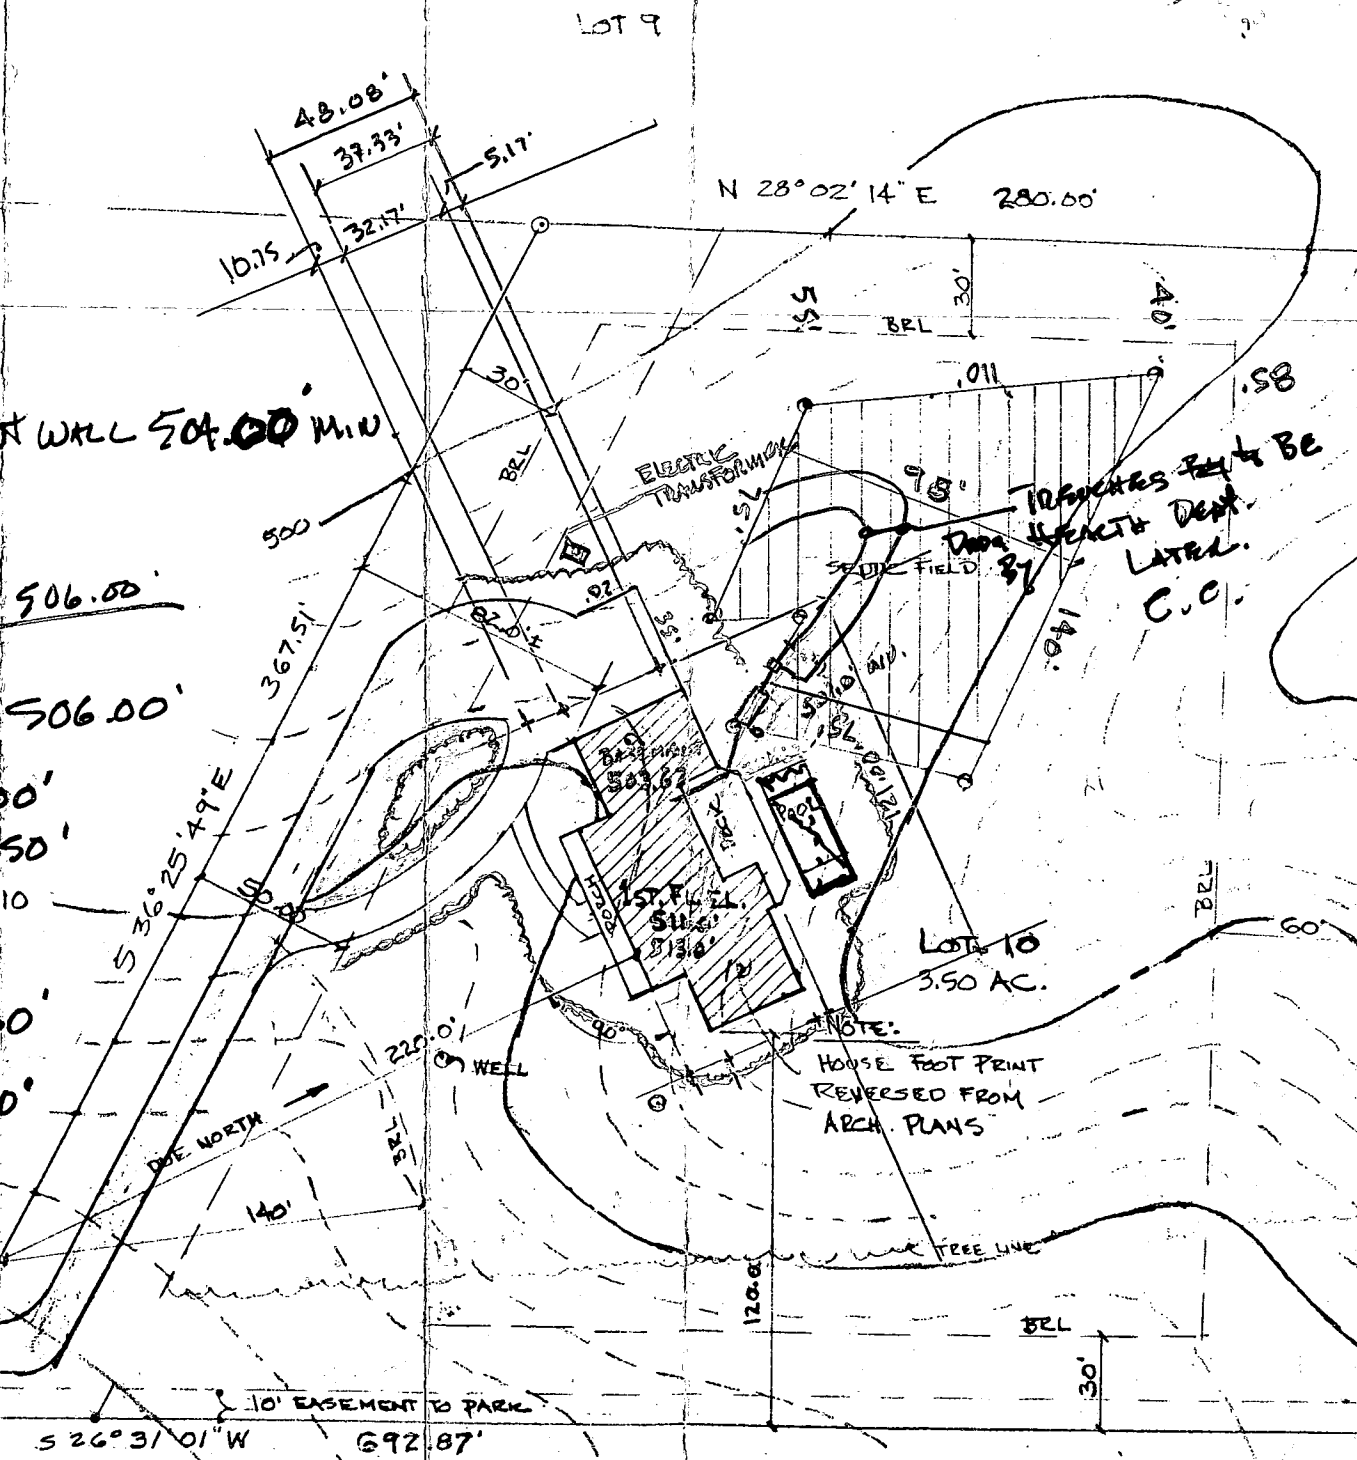 LOT 9
48.08'
37.33'
5.17'
32.17'
10.75
N 28°02'14" E 280.00'
30'
BRL
55'
40'
110.
85.
30'
WALL 504.00' MIN.
BRL
ELECTRIC
TRANSFORMER
75'
95'
TRENCHES TO BE
HEALTH DEPT.
BY
LATER.
C.C.
SEPTIC FIELD
500
506.00'
20'
35'
82.0'±
367.51'
140'
506.00'
75'
121.0
BASEMENT
503.67
POOL
DECK
00'
50'
10
S 36° 25' 49" E
50.0
PORCH
1ST. FL. EL.
513.0'
BRL
60'
LOT 10
3.50 AC.
NOTE:
HOUSE FOOT PRINT
REVERSED FROM
ARCH. PLANS
90°
220.0'
WELL
DUE NORTH
BRL
140'
TREE LINE
120.0'
BRL
30'
10' EASEMENT TO PARK
S 26° 31' 01" W 692.87'